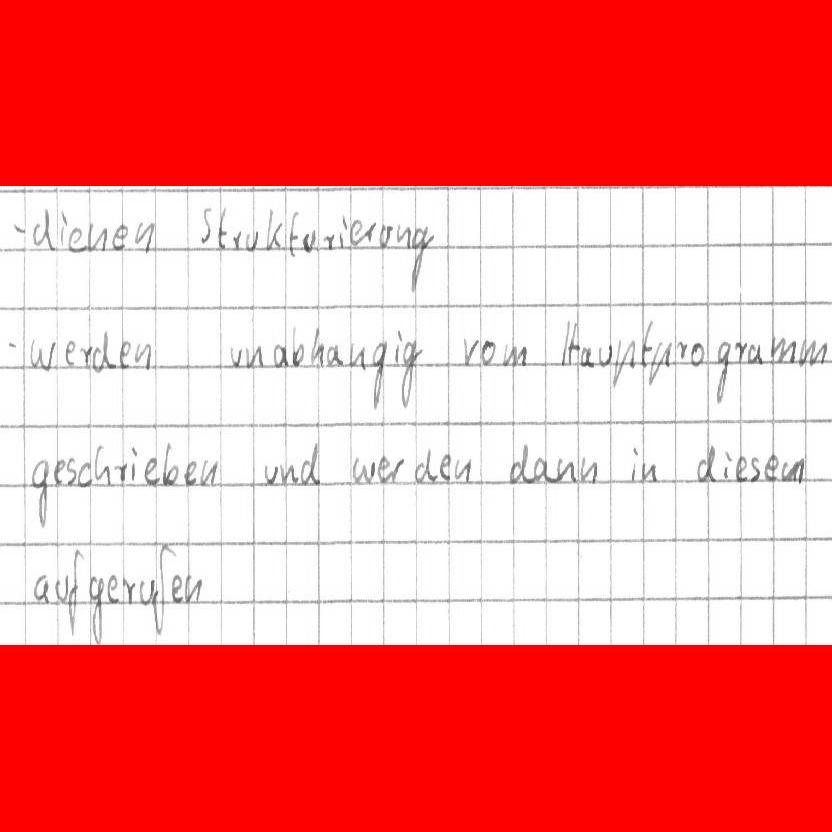 -dienen Strukturierung
-werden unabhangig vom Hauptprogramm
geschrieben und werden dann in diesem
aufgerufen